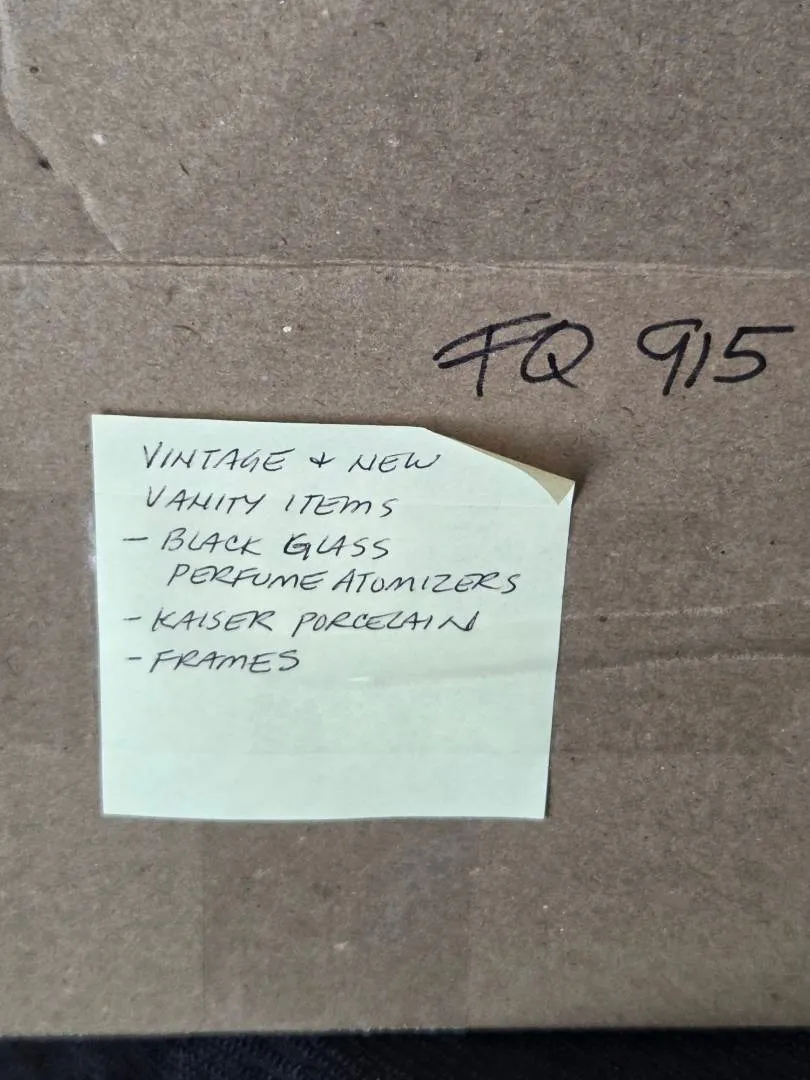 FQ 915
VINTAGE & NEW
VANITY ITEMS
- BLACK GLASS
PERFUME ATOMIZERS
- KAISER PORCELAIN
- FRAMES